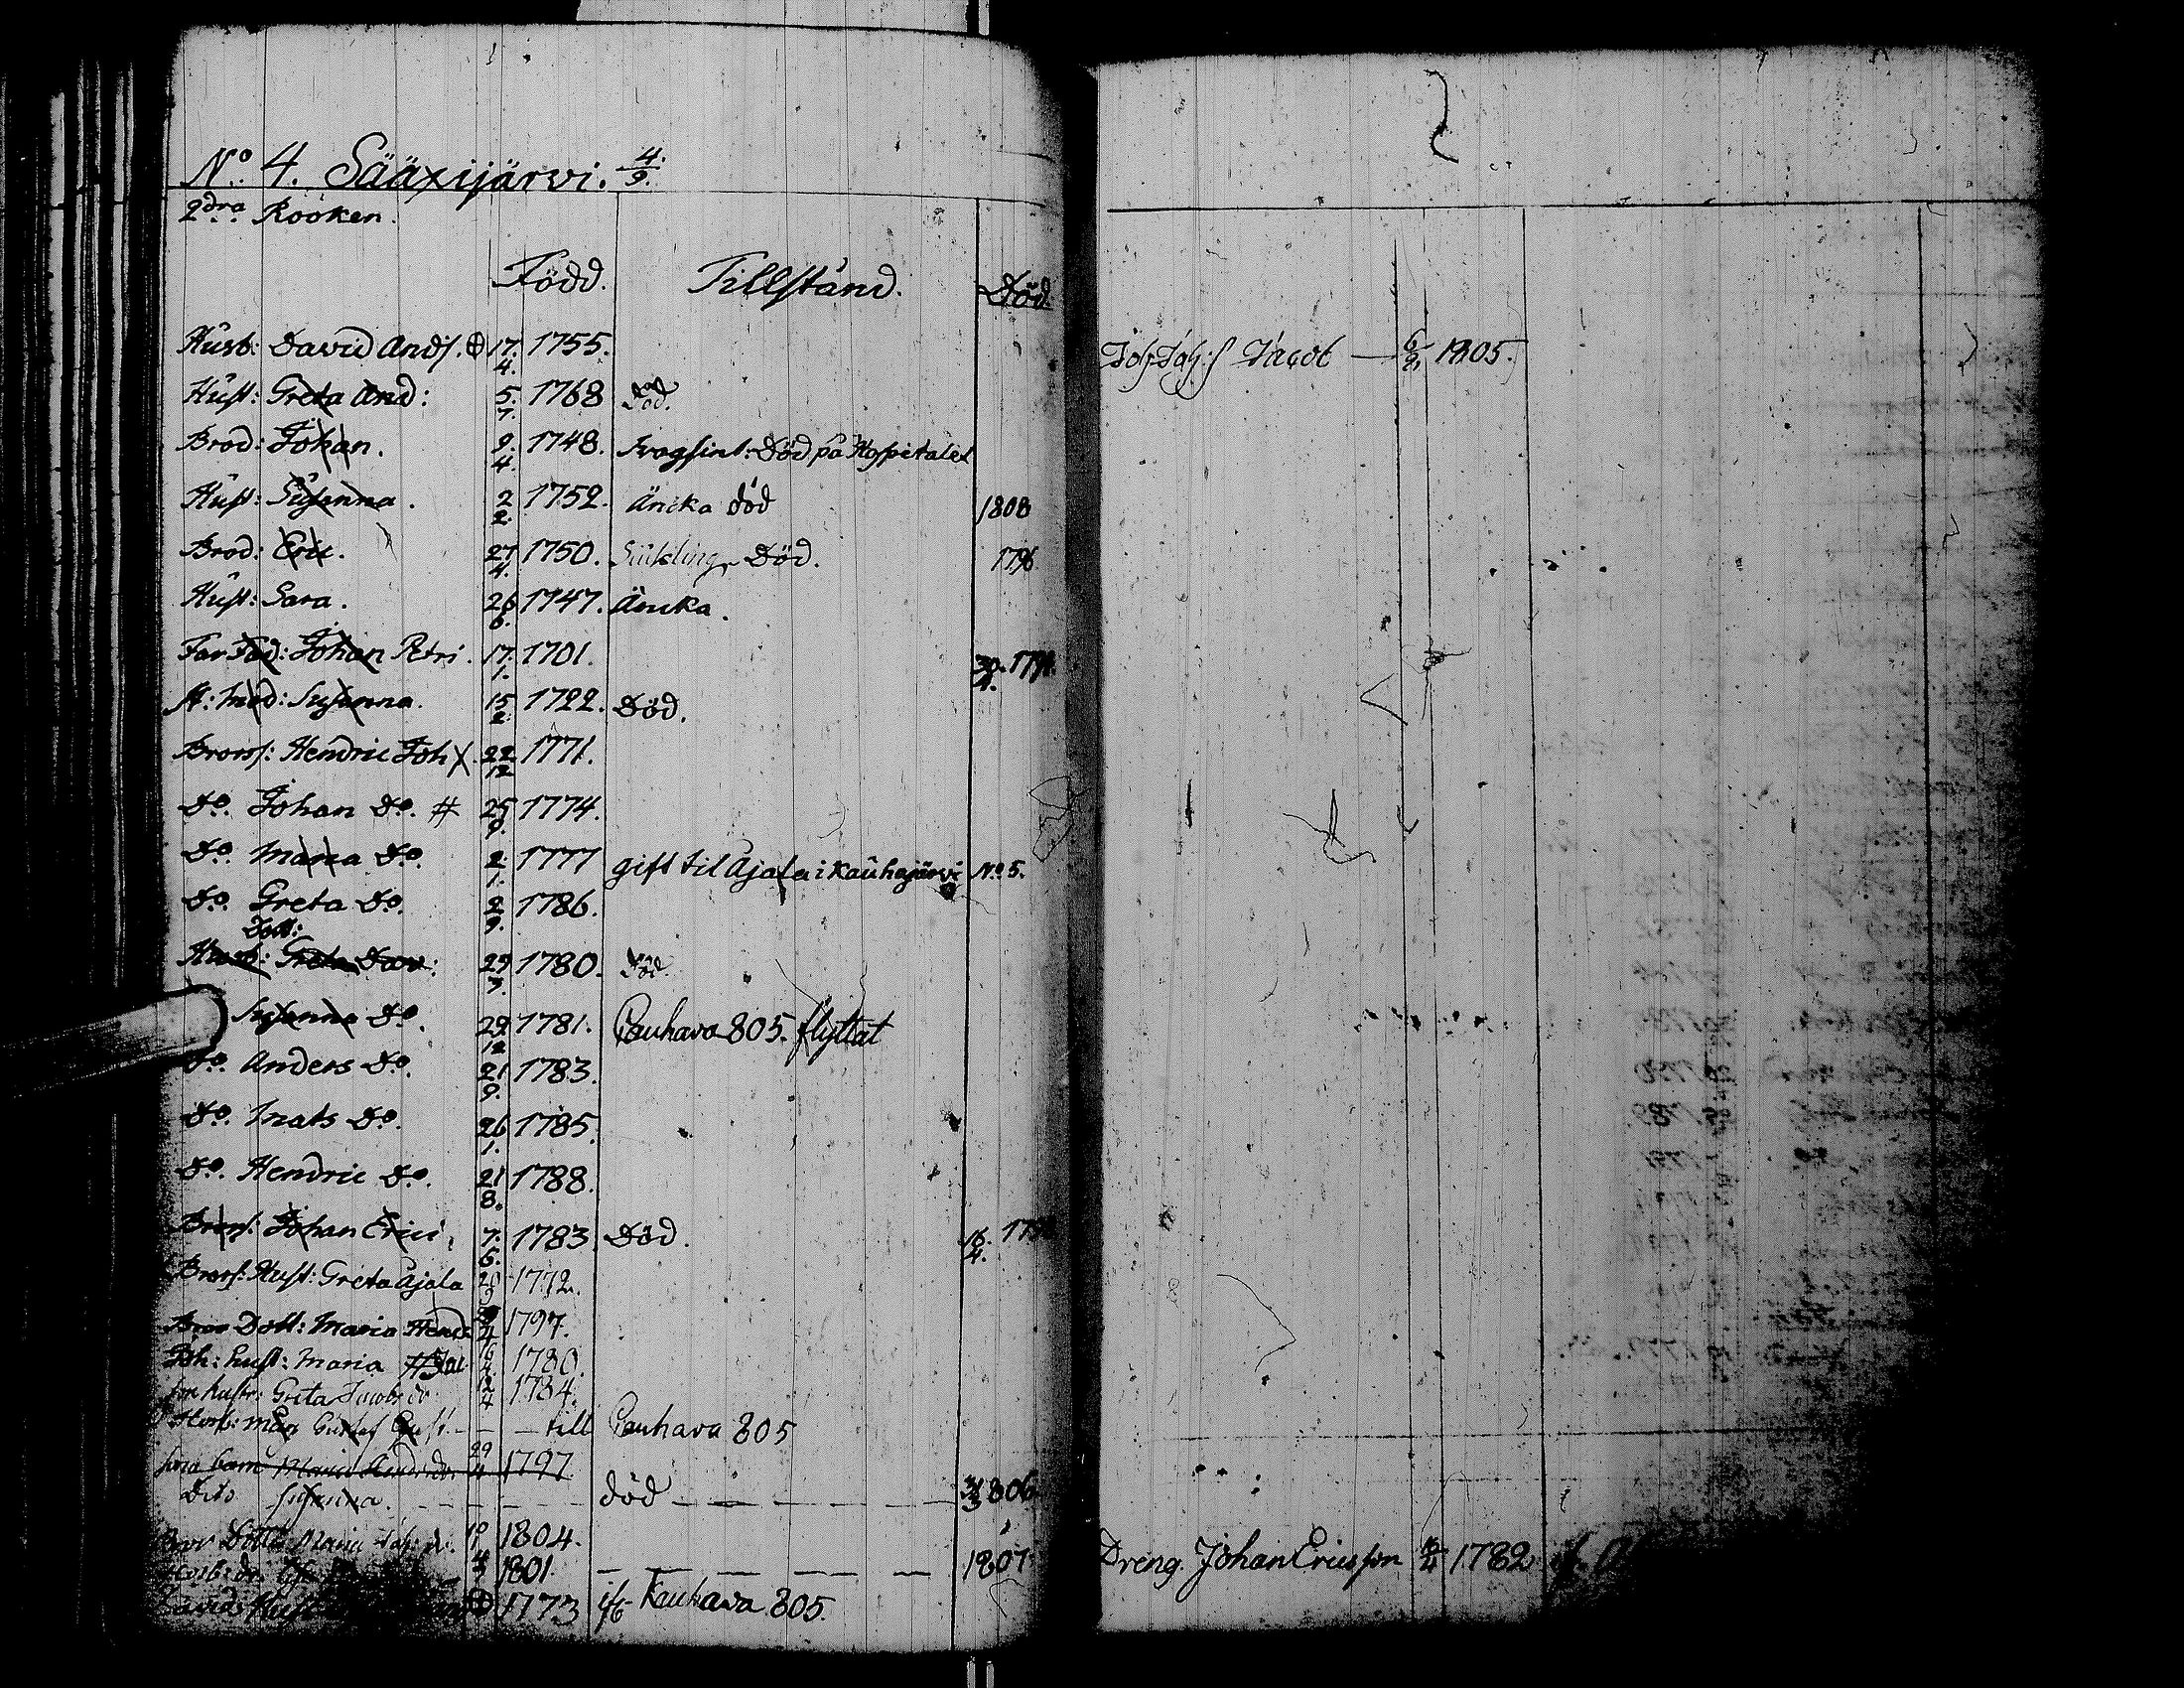 No. 4. Sääxijärvi. 4./9.
2dra Rooken.
Född. Tillstånd. Död.
Husb: David Ands. 17./4. 1755.
Hust: Greta And: 5./7. 1768 Död.
Brod: Johan. 9./4. 1748. Svagsint. Död på Hospitalet
Hust: Susanna. 2/2. 1752. Äncka död 1808
Brod: Eric. 27/4. 1750. Död. 1796
Hust: Sara. 26/6. 1747. Äncka.
Far Fad: Johan Petri. 17./1. 1701. 30./4.
mod: Susanna. 15/2. 1722. Död.
Brors: Hendric Joh 22/12 1771.
Do. Johan Do. # 25/9. 1774.
Do. Maria Do. 2./1. 1777 gift til Ajala i Kauhajärvi No. 5.
Do. Greta Do. 2/9. 1786.
Dott:
Husb: Greta Dav: 29/3. 1780. Död.
Susanna Do. 29./12 1781. Pauhava 805. flyttat
Do. Anders Do. 21/9. 1783.
Do. Mats Do. 26/1. 1785.
Do. Hendric Do. 21/8. 1788.
Brors: Johan Erici, 7./6. 1783 Död. 16./4.
Brors: Hust: Greta Ajala 1772.
Bror Dott: Maria Hend 1797.
Joh: hust: Maria 16/4. 1780.
son hustr: Greta Jacobs dr 12/4 1784.
Husb: mån Gustaf Gust. – – till Pauhava 805
barn Maria 29/4 1797
Dito Susanna. – – – död – – – 806
Bror Dott: Maria 10/1 1804.
4/7 1801. – – – 1807
Davids Hust 1773 Kauhava 805.
Joh Joh: s Jacob — 6/9. 1805.
Dreng. Johan Ericsson 1782